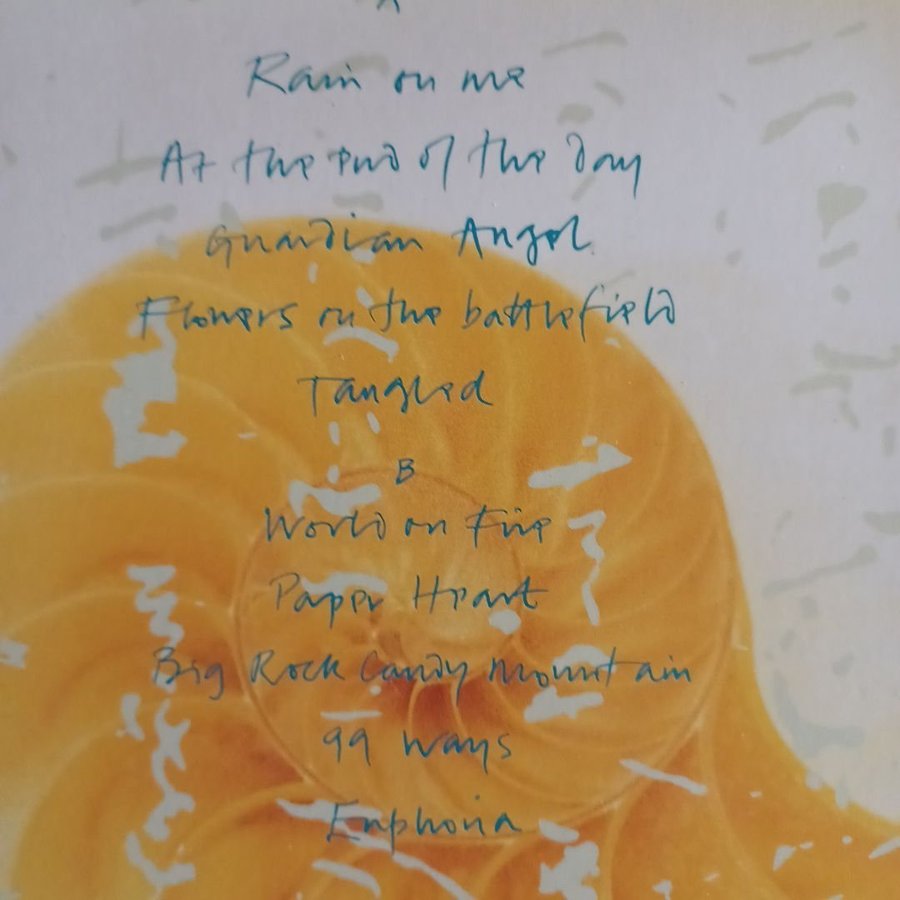 A
Rain on me
At the end of the day
Guardian Angel
Flowers on the battlefield
Tangled
B
World on Fire
Paper Heart
Big Rock Candy Mountain
99 ways
Euphoria